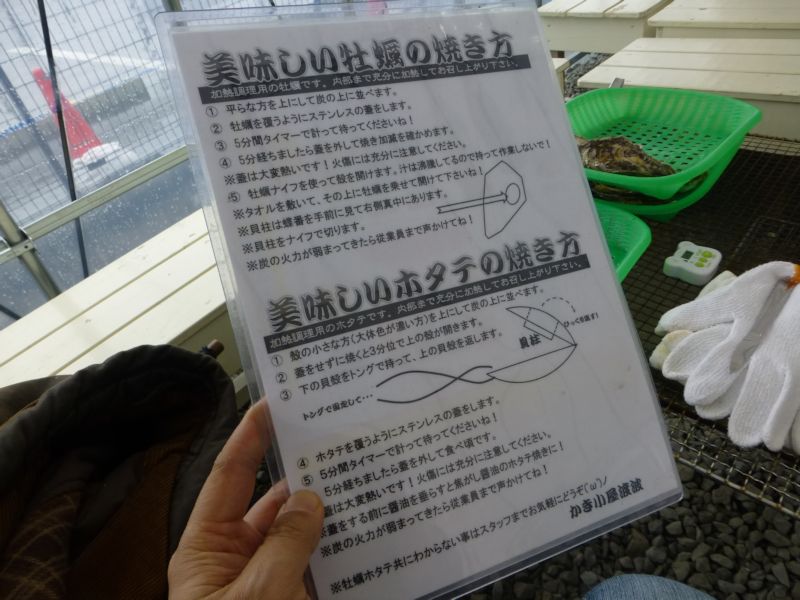 美味しい牡蠣の焼き方
加熱調理用の牡蠣です。内部まで充分に加熱してお召し上がり下さい。
① 平らな方を上にして炭の上に並べます。
② 牡蠣を覆うようにステンレスの蓋をします。
③ 5分間タイマーで計って待ってくださいね!
④ 5分経ちましたら蓋を外して焼き加減を確かめます。
※蓋は大変熱いです!火傷には充分に注意してください。
⑤ 牡蠣ナイフを使って殻を開けます。汁は沸騰してるので持って作業しないで!
※タオルを敷いて、その上に牡蠣を乗せて開けて下さいね!
※貝柱は蝶番を手前に見て右側真中にあります。
※貝柱をナイフで切ります。
※炭の火力が弱まってきたら従業員まで声かけてね!
美味しいホタテの焼き方
加熱調理用のホタテです。内部まで充分に加熱してお召し上がり下さい。
① 殻の小さな方(大体色が濃い方)を上にして炭の上に並べます。
② 蓋をせずに焼くと3分位で上の殻が開きます。
③ 下の貝殻をトングで持って、上の貝殻を返します。
ひっくり返す!
貝柱
トングで固定して・・・
④ ホタテを覆うようにステンレスの蓋をします。
⑤ 5分間タイマーで計って待ってくださいね!
5分経ちましたら蓋を外して食べ頃です。
蓋は大変熱いです!火傷には充分に注意してください。
※蓋をする前に醤油を垂らすと焦がし醤油のホタテ焼きに!
※炭の火力が弱まってきたら従業員まで声かけてね!
※牡蠣ホタテ共にわからない事はスタッフまでお気軽にどうぞ('ω')ノ
かき小屋渡波